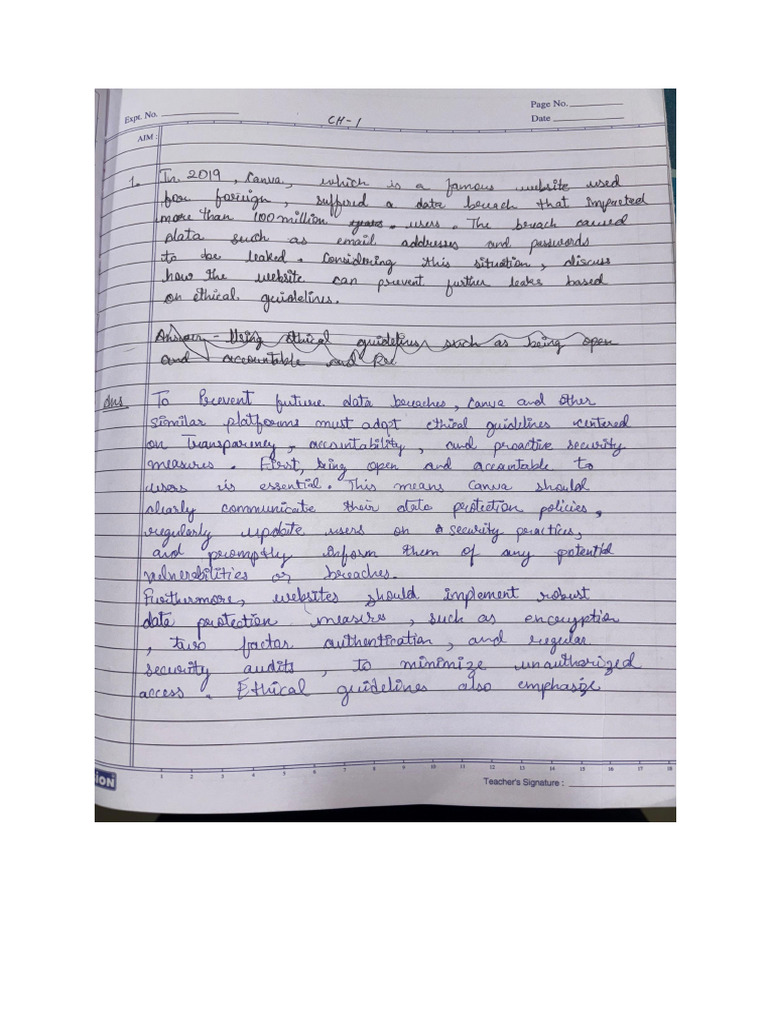 Expt. No.
Page No.
CH-1
Date
AIM :
1. In 2019, Canva, which is a famous website used
for foreign, suffered a data breach that impacted
more than 100 million years. users. The breach caused
data such as email addresses and passwords
to be leaked. Considering this situation, discuss
how the website can prevent further leaks based
on ethical guidelines.
Answer - Using ethical guidelines such as being open
and accountable and
Ans To Prevent future data breaches, Canva and other
similar platforms must adopt ethical guidelines centered
on Transparency, accountability, and proactive security
measures. First, being open and accountable to
users is essential. This means Canva should
clearly communicate their data protection policies,
regularly update users on security practices,
and promptly inform them of any potential
vulnerabilities or breaches.
Furthermore, websites should implement robust
data protection measures, such as encryption
, two factor authentication, and regular
security audits, to minimize unauthorized
access. Ethical guidelines also emphasize
1 2 3 4 5 6 7 8 9 10 11 12 13 14 15 16 17 18
ION
Teacher's Signature :